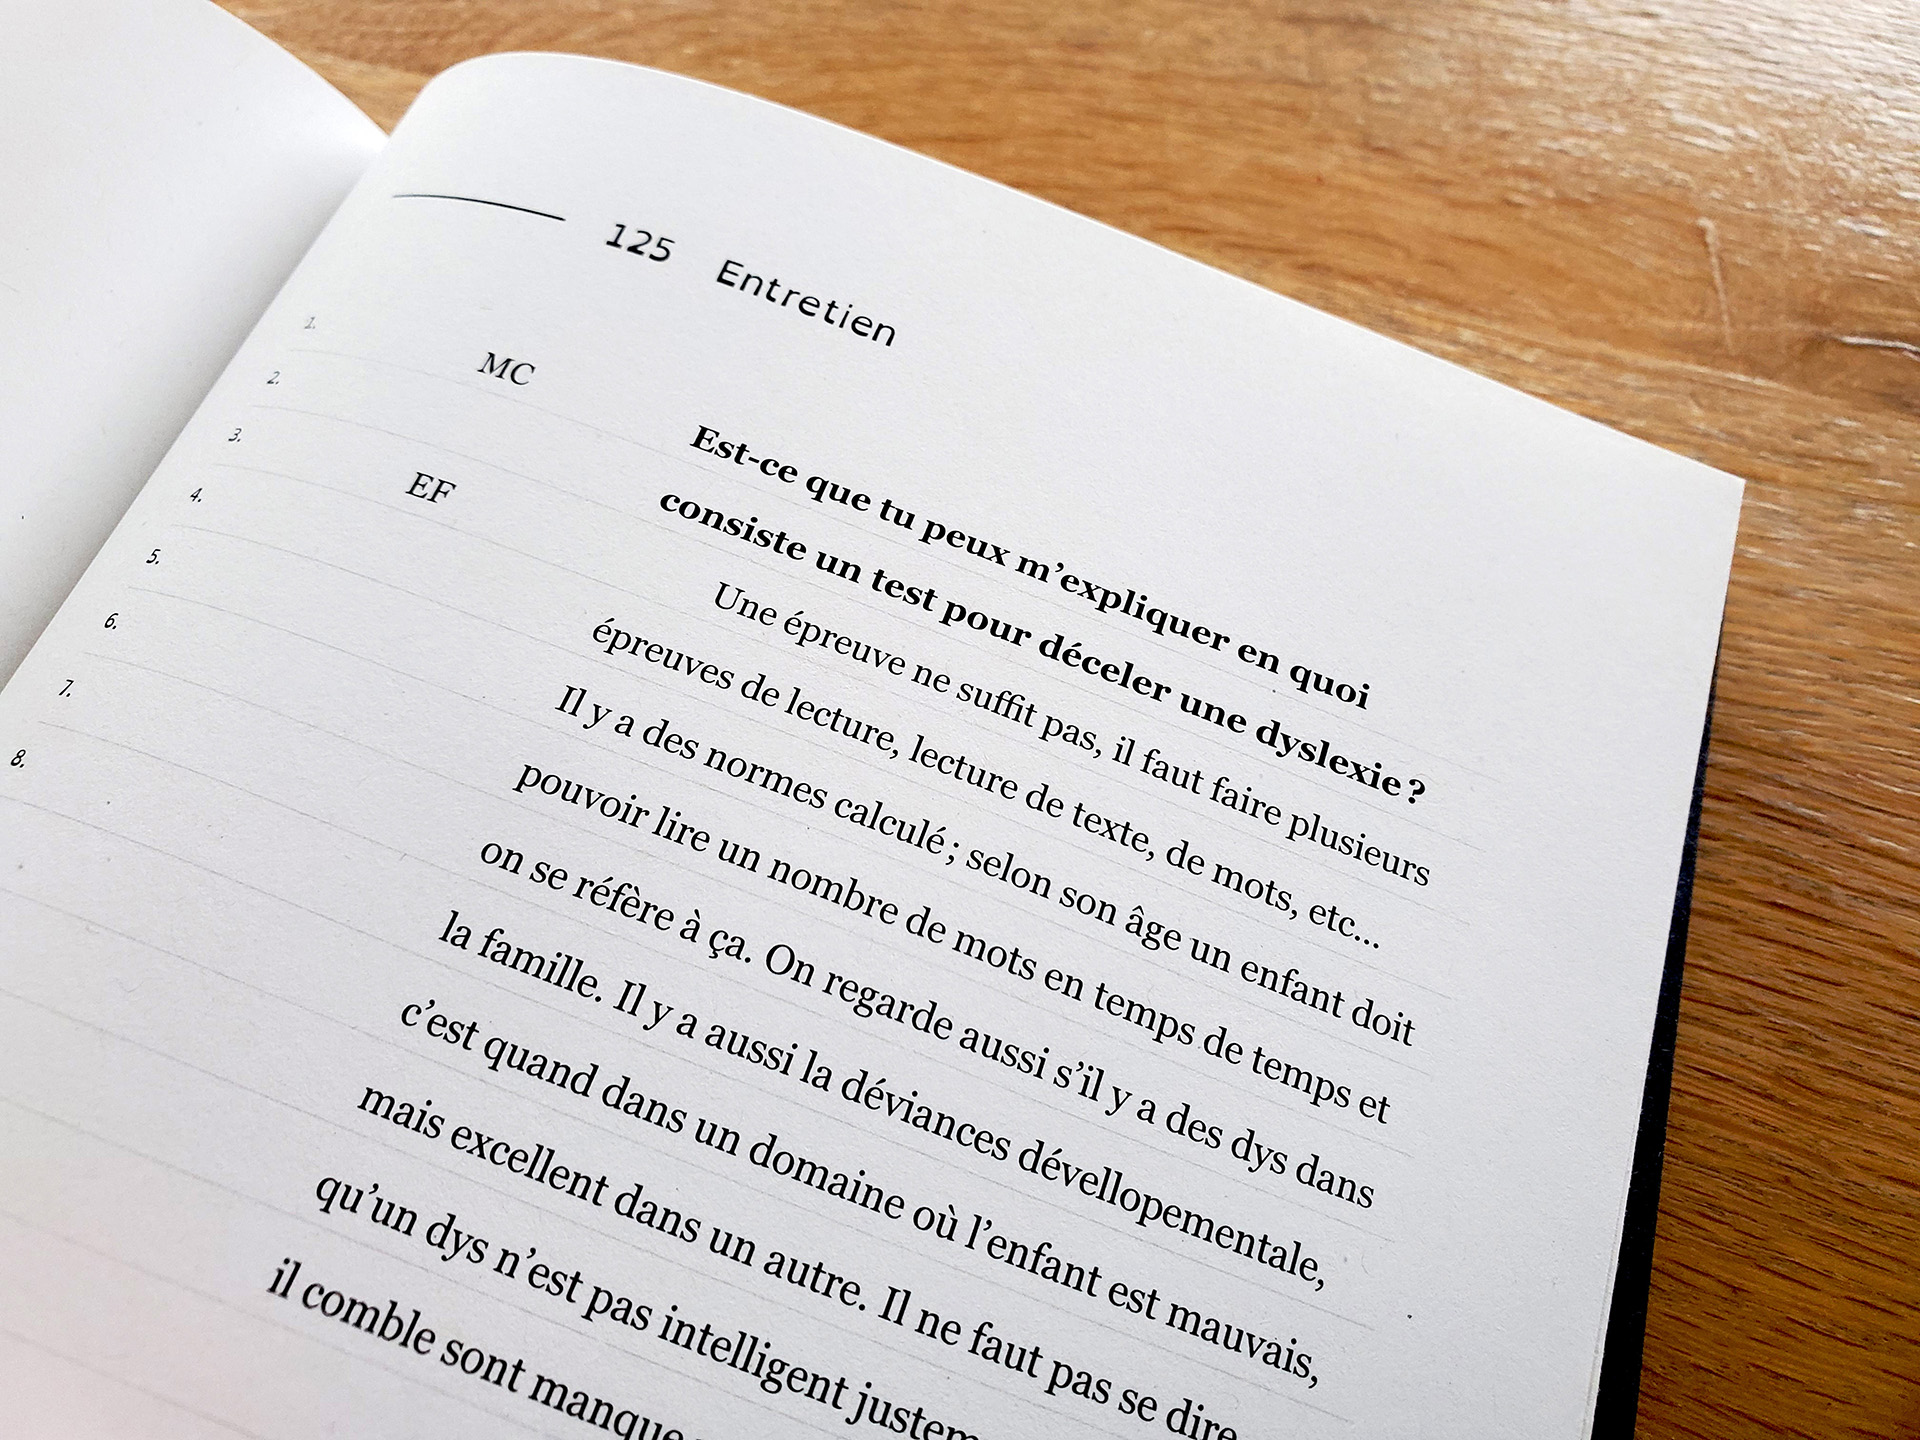 125 Entretien
1.
MC
Est-ce que tu peux m’expliquer en quoi
2.
consiste un test pour déceler une dyslexie ?
3.
EF
Une épreuve ne suffit pas, il faut faire plusieurs
4.
épreuves de lecture, lecture de texte, de mots, etc...
5.
Il y a des normes calculé ; selon son âge un enfant doit
6.
pouvoir lire un nombre de mots en temps de temps et
7.
on se réfère à ça. On regarde aussi s’il y a des dys dans
8.
la famille. Il y a aussi la déviances dévellopementale,
c’est quand dans un domaine où l’enfant est mauvais,
mais excellent dans un autre. Il ne faut pas se dire
qu’un dys n’est pas intelligent
il comble sont manque